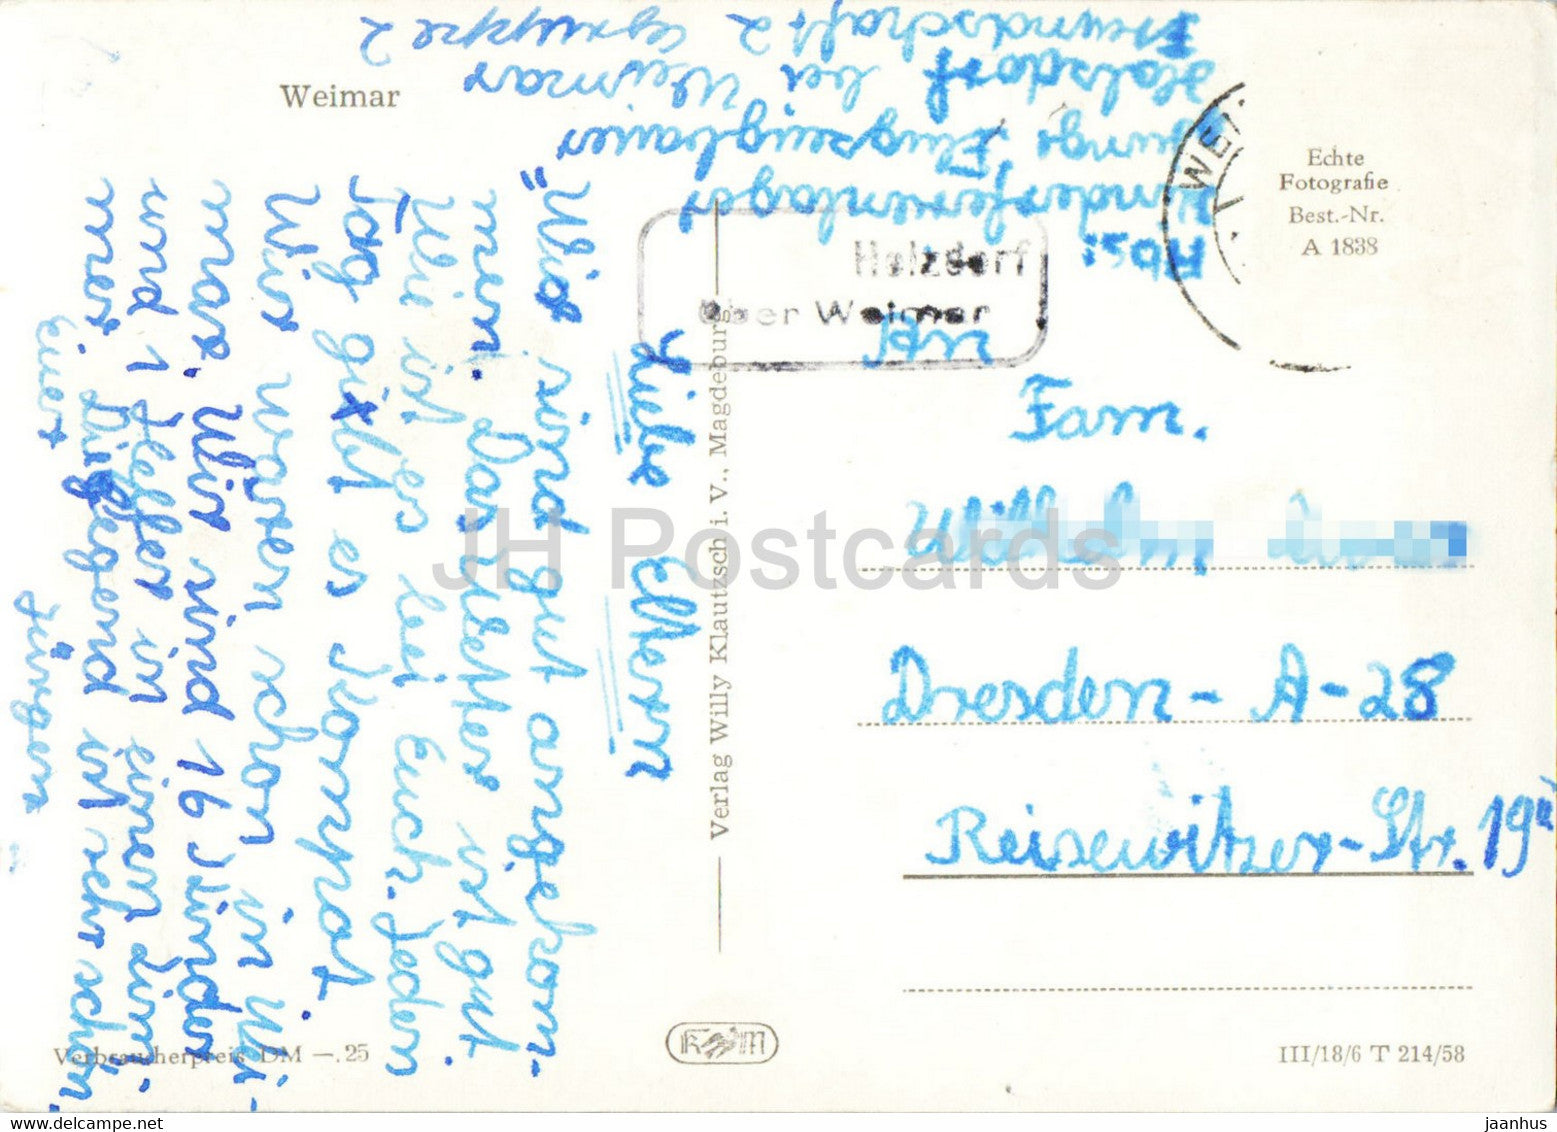 Weimar
Abs:
Kinderferienlager
"Junge Flugzeugbauer"
Holsdorf bei Weimar
Freundschaft 2 Gruppe 2
Echte
Fotografie
Best.-Nr.
A 1838
WEI
Holzdorf
über Weimar
An
Fam.
Wilhelm
Dresden-A-28
Reisewitzer-Str. 19
Liebe Eltern
"Wir sind gut angekom-
men. Das Wetter ist gut.
Wie ist es bei Euch. Jeden
Tag gibt es Kompot.
Wir waren schon in Wei-
mar. Wir sind 16 Kinder
und 1 Helfer in einem Zim-
mer. Die Gegend ist sehr schön.
Euer
Jürgen
Verlag Willy Klautzsch i. V., Magdeburg S
Verbraucherpreis DM —.25
K M
III/18/6 T 214/58
JH Postcards
https://www.delcampe.net
jaanhus